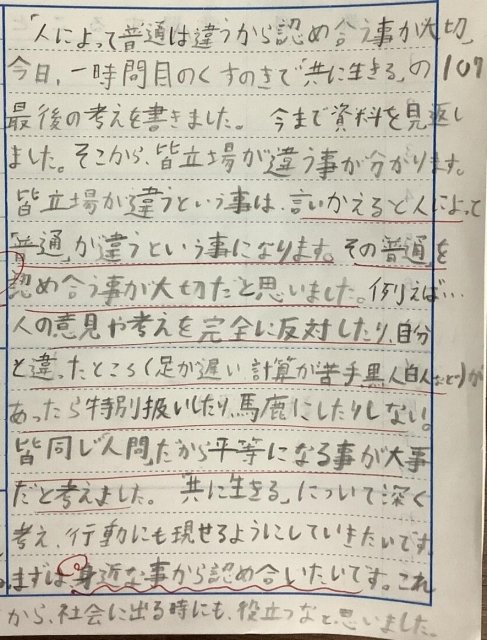 「人によって普通は違うから認め合う事が大切」
今日、一時間目のくすのきで「共に生きる」の
107
最後の考えを書きました。 今まで資料を見返し
ました。そこから、皆立場が違う事が分かります。
皆立場が違うという事は、言いかえると人によって
「普通」が違うという事になります。その普通」を
認め合う事が大切だと思いました。例えば…
人の意見や考えを完全に反対したり、自分
と違ったところ(足が遅い 計算が苦手 黒人白人など)が
あったら特別扱いしたり、馬鹿にしたりしない。
皆同じ「人間」だから平等になる事が大事
だと考えました。「共に生きる」について深く
考え、行動にも現せるようにしていきたいです
まずは身近な事から認め合いたいです。これ
から、社会に出る時にも、役立つなと思いました。